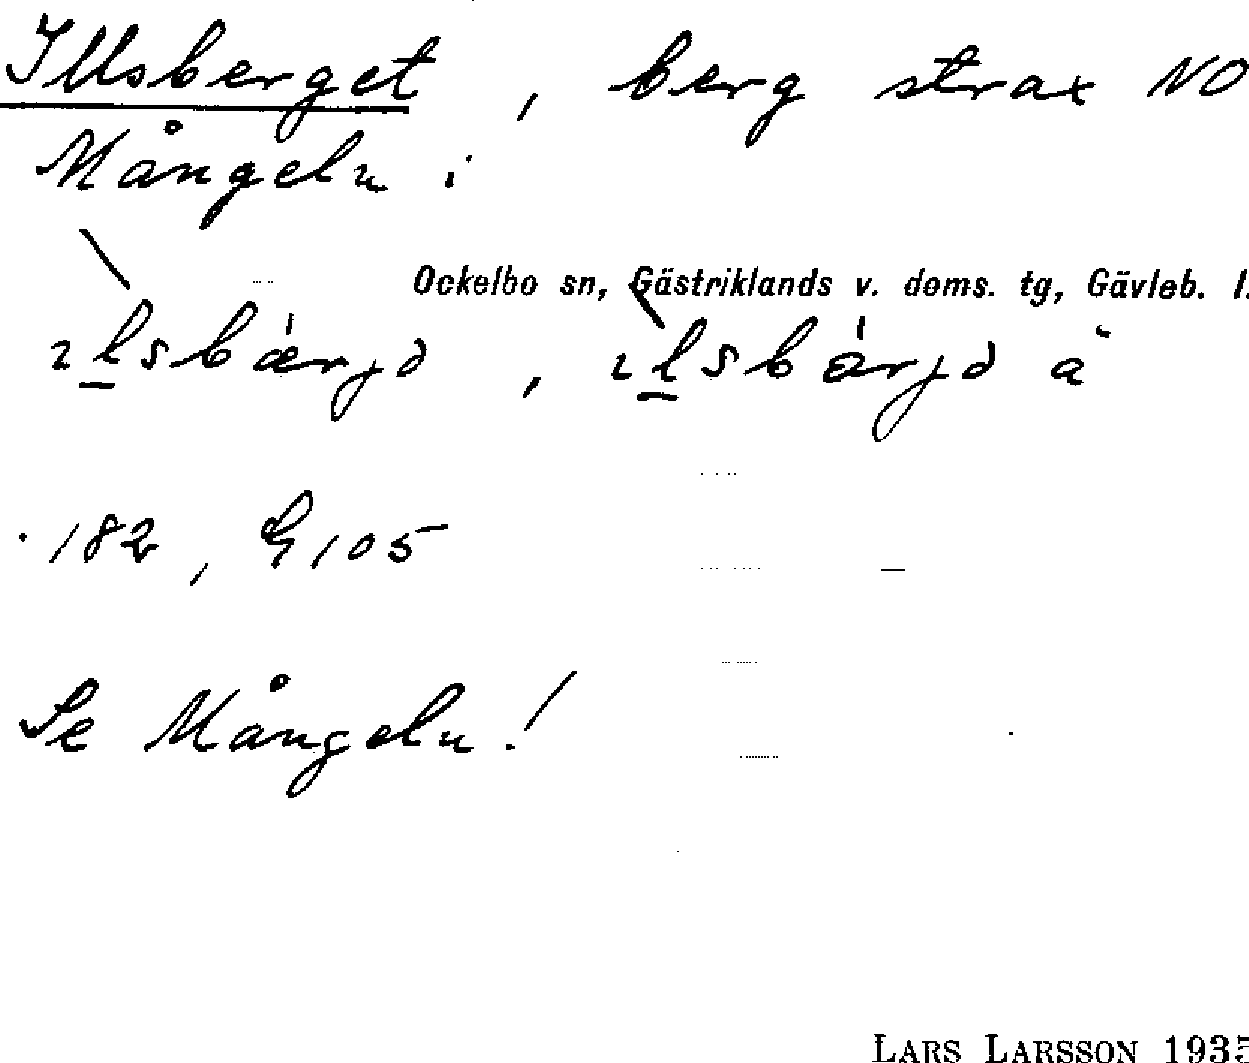 Illsberget, berg strax NO
Mångeln i
Ockelbo sn, Gästriklands v. doms. tg, Gävleb. l.
ılsbærjə, ılsbærjə à
182, G 105
Se Mångeln!
LARS LARSSON 1935